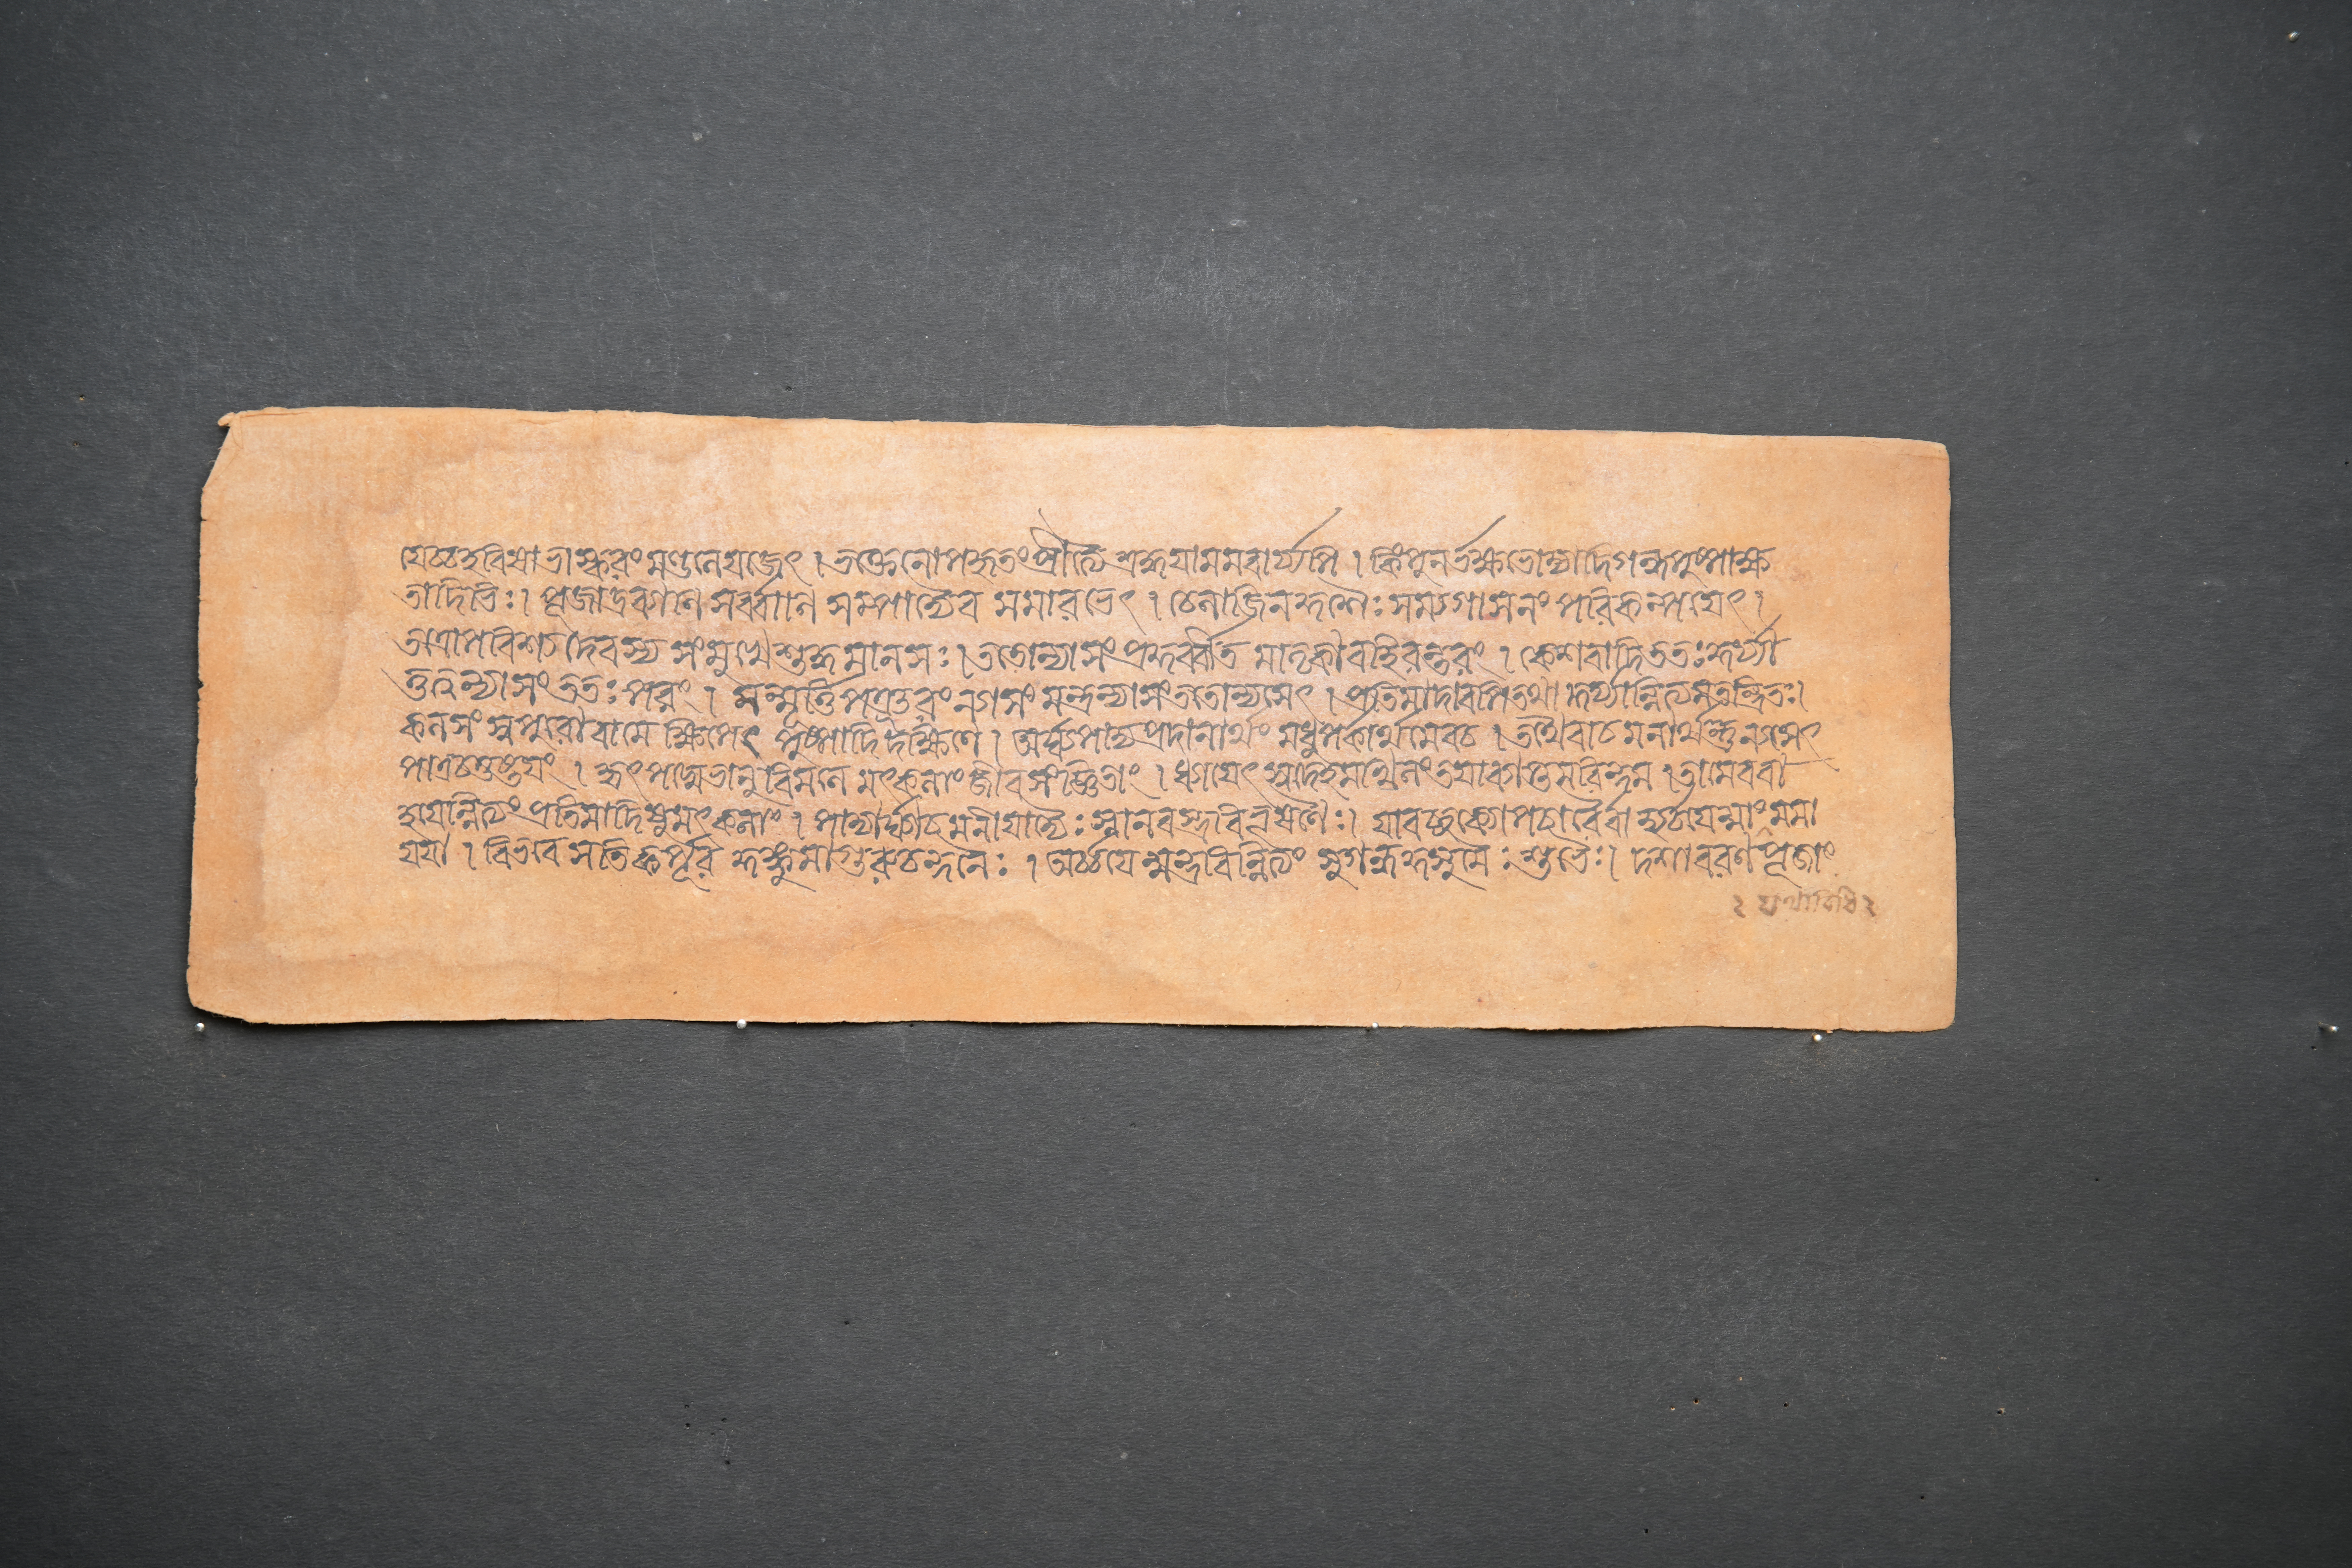 যেচ্চহবিষাভাস্করংমণ্ডলেযজেৎ । ভক্তেনোপহৃতংপ্রীত্যৈশ্রদ্ধযামমবার্য্যপি । কিংপুনর্ভক্ষভোজ্যাদিগন্ধপুষ্পাক্ষ
তাদিভিঃ । পূজাদ্রব্যাণি সর্ব্বাণি সম্পাদ্যৈব সমারভেৎ । চৈলাজিনকুশৈঃ সম্যগাসনং পরিকল্পযেৎ ।
তত্রোপবিশ্য দেবস্য সংমুখে শুদ্ধমানসঃ । ততোন্যাসংপ্রকুর্ব্বীত মাতৃকাবহিরন্তরং । কেশবাদিততঃকুর্য্যা
ত্তত্ত্বন্যাসংততঃপরং । মন্মূর্ত্তিপঞ্জরংন্যাসং মন্ত্রন্যাসংততোন্যসেৎ । প্রতিমাদাবপিতথা কুর্য্যান্নিত্যমতন্দ্রিতঃ ।
কলসং স্বপুরোবামে ক্ষিপেৎ পুষ্পাদি দক্ষিণে । অর্ঘ্যপাদ্যপ্রদানার্থং মধুপর্কার্থমেবচ । তথৈবাচমনার্থন্তুন্যসেৎ
পাত্রচতুষ্টযং । হৃৎপদ্মেভানুবিমলে মৎকলাং জীবসংজ্ঞিতাং । ধ্যাযেৎ স্বদেহমখিলংতযাব্যাপ্তমরিন্দম । তামেববা
হযেন্নিত্যংপ্রতিমাদিষুমৎকলাং । পাদ্যার্ঘ্যাচমনীযাদ্যৈঃ স্নানবস্ত্রবিভূষণৈঃ । যাবচ্ছক্যোপচারৈর্বা হ্যর্চযেন্মাংমমা
যযা । বিভবে সতি কর্পূর কুঙ্কুমাগুরুচন্দনৈঃ । অর্চ্চযেন্মন্ত্রবিন্নিত্যং সুগন্ধকুসুমৈঃ শুভৈঃ । দশাবরণপূজাং
২ যথাবিধি ২